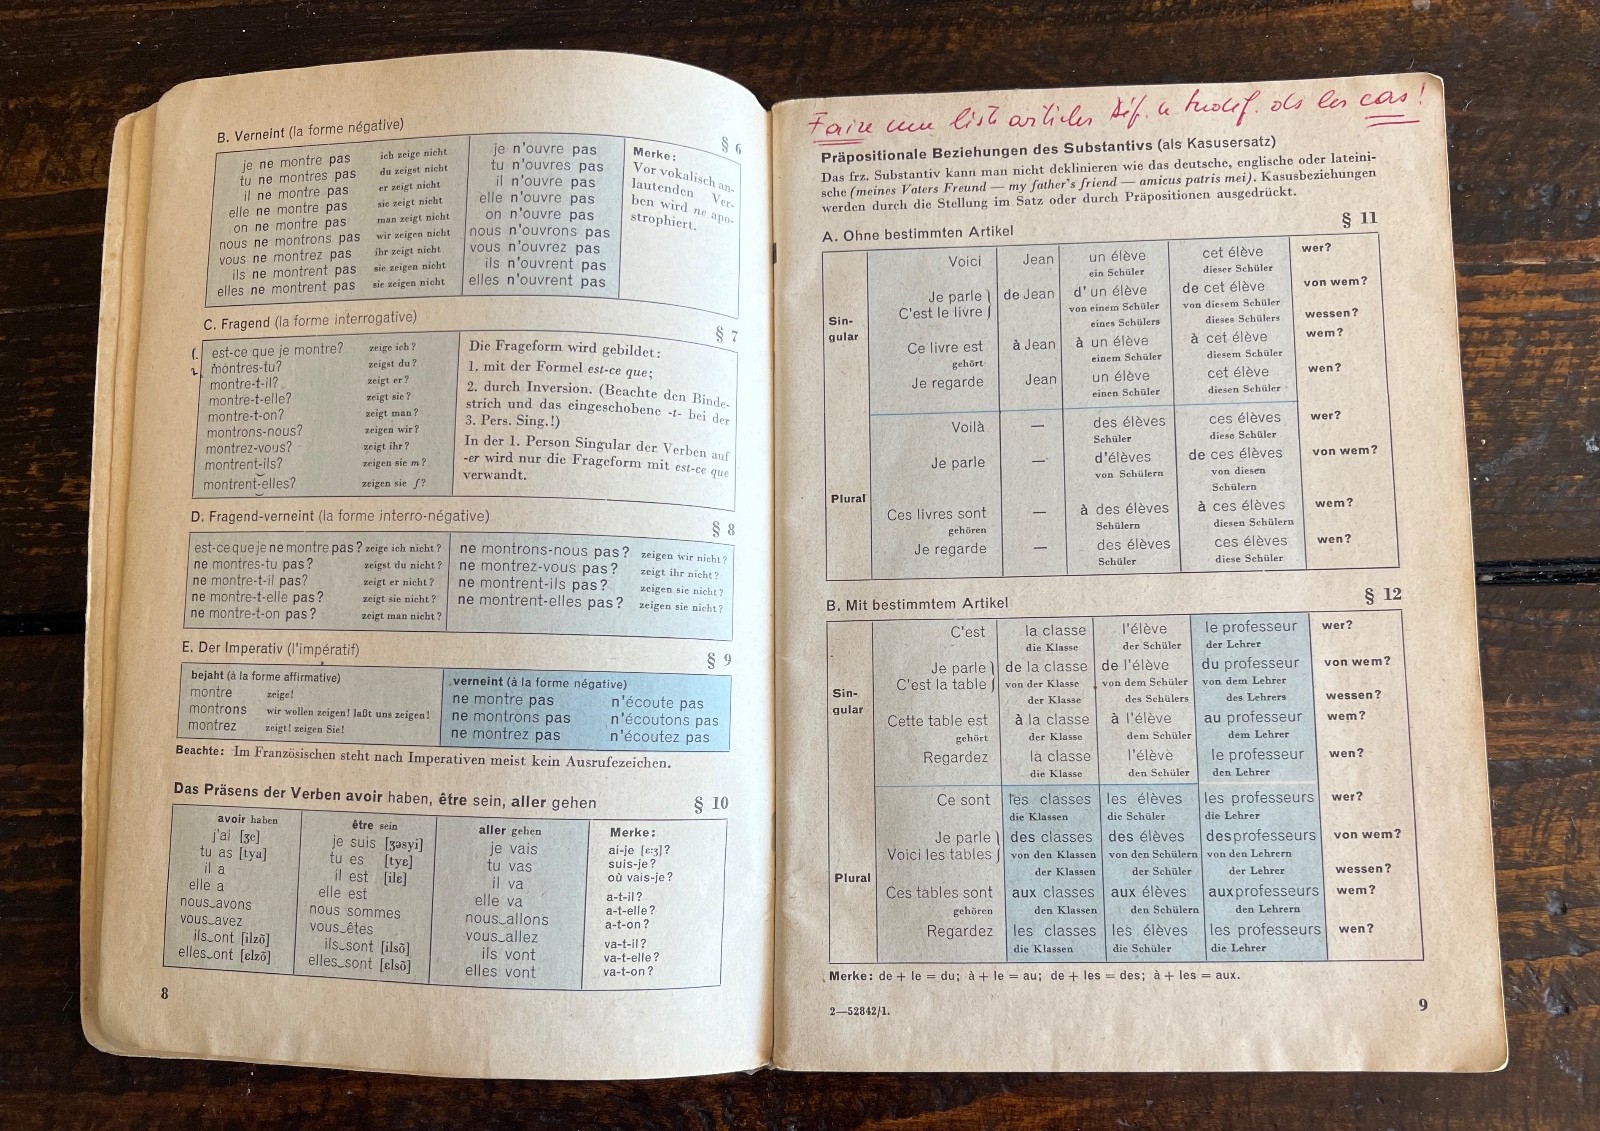 B. Verneint (la forme négative)
§ 6
je ne montre pas ich zeige nicht
tu ne montres pas du zeigst nicht
il ne montre pas er zeigt nicht
elle ne montre pas sie zeigt nicht
on ne montre pas man zeigt nicht
nous ne montrons pas wir zeigen nicht
vous ne montrez pas ihr zeigt nicht
ils ne montrent pas sie zeigen nicht
elles ne montrent pas sie zeigen nicht
je n'ouvre pas
tu n'ouvres pas
il n'ouvre pas
elle n'ouvre pas
on n'ouvre pas
nous n'ouvrons pas
vous n'ouvrez pas
ils n'ouvrent pas
elles n'ouvrent pas
Merke:
Vor vokalisch an-
lautenden Ver-
ben wird ne apo-
strophiert.
C. Fragend (la forme interrogative)
§ 7
1. est-ce que je montre? zeige ich?
2. montres-tu? zeigst du?
montre-t-il? zeigt er?
montre-t-elle? zeigt sie?
montre-t-on? zeigt man?
montrons-nous? zeigen wir?
montrez-vous? zeigt ihr?
montrent-ils? zeigen sie m?
montrent-elles? zeigen sie f?
Die Frageform wird gebildet:
1. mit der Formel est-ce que;
2. durch Inversion. (Beachte den Binde-
strich und das eingeschobene -t- bei der
3. Pers. Sing.!)
In der 1. Person Singular der Verben auf
-er wird nur die Frageform mit est-ce que
verwandt.
D. Fragend-verneint (la forme interro-négative)
§ 8
est-ce que je ne montre pas? zeige ich nicht?
ne montres-tu pas? zeigst du nicht?
ne montre-t-il pas? zeigt er nicht?
ne montre-t-elle pas? zeigt sie nicht?
ne montre-t-on pas? zeigt man nicht?
ne montrons-nous pas? zeigen wir nicht?
ne montrez-vous pas? zeigt ihr nicht?
ne montrent-ils pas? zeigen sie nicht?
ne montrent-elles pas? zeigen sie nicht?
E. Der Imperativ (l'impératif)
§ 9
bejaht (à la forme affirmative)
montre zeige!
montrons wir wollen zeigen! laßt uns zeigen!
montrez zeigt! zeigen Sie!
verneint (à la forme négative)
ne montre pas n'écoute pas
ne montrons pas n'écoutons pas
ne montrez pas n'écoutez pas
Beachte: Im Französischen steht nach Imperativen meist kein Ausrufezeichen.
Das Präsens der Verben avoir haben, être sein, aller gehen
§ 10
avoir haben
j'ai [ʒe]
tu as [tya]
il a
elle a
nous‿avons
vous‿avez
ils‿ont [ilzõ]
elles‿ont [ɛlzõ]
être sein
je suis [ʒəsyi]
tu es [tyɛ]
il est [ilɛ]
elle est
nous sommes
vous‿êtes
ils‿sont [ilsõ]
elles‿sont [ɛlsõ]
aller gehen
je vais
tu vas
il va
elle va
nous‿allons
vous‿allez
ils vont
elles vont
Merke:
ai-je [ɛ:ʒ]?
suis-je?
où vais-je?
a-t-il?
a-t-elle?
a-t-on?
va-t-il?
va-t-elle?
va-t-on?
8
Faire une liste articles déf. u indéf. ds les cas!
Präpositionale Beziehungen des Substantivs (als Kasusersatz)
Das frz. Substantiv kann man nicht deklinieren wie das deutsche, englische oder lateini-
sche (meines Vaters Freund — my father's friend — amicus patris mei). Kasusbeziehungen
werden durch die Stellung im Satz oder durch Präpositionen ausgedrückt.
§ 11
A. Ohne bestimmten Artikel
Voici Jean un élève cet élève wer?
ein Schüler dieser Schüler
Je parle } de Jean d'un élève de cet élève von wem?
C'est le livre } von einem Schüler von diesem Schüler
Sin- eines Schülers dieses Schülers wessen?
gular
Ce livre est à Jean à un élève à cet élève wem?
gehört einem Schüler diesem Schüler
Je regarde Jean un élève cet élève wen?
einen Schüler diesen Schüler
Voilà — des élèves ces élèves wer?
Schüler diese Schüler
Je parle — d'élèves de ces élèves von wem?
von Schülern von diesen
Schülern
Plural
Ces livres sont — à des élèves à ces élèves wem?
gehören Schülern diesen Schülern
Je regarde — des élèves ces élèves wen?
Schüler diese Schüler
§ 12
B. Mit bestimmtem Artikel
C'est la classe l'élève le professeur wer?
die Klasse der Schüler der Lehrer
Je parle } de la classe de l'élève du professeur von wem?
C'est la table } von der Klasse von dem Schüler von dem Lehrer
Sin- der Klasse des Schülers des Lehrers wessen?
gular
Cette table est à la classe à l'élève au professeur wem?
gehört der Klasse dem Schüler dem Lehrer
Regardez la classe l'élève le professeur wen?
die Klasse den Schüler den Lehrer
Ce sont les classes les élèves les professeurs wer?
die Klassen die Schüler die Lehrer
Je parle } des classes des élèves des professeurs von wem?
Voici les tables } von den Klassen von den Schülern von den Lehrern
Plural der Klassen der Schüler der Lehrer wessen?
Ces tables sont aux classes aux élèves aux professeurs wem?
gehören den Klassen den Schülern den Lehrern
Regardez les classes les élèves les professeurs wen?
die Klassen die Schüler die Lehrer
Merke: de + le = du; à + le = au; de + les = des; à + les = aux.
2—52842/1.
9